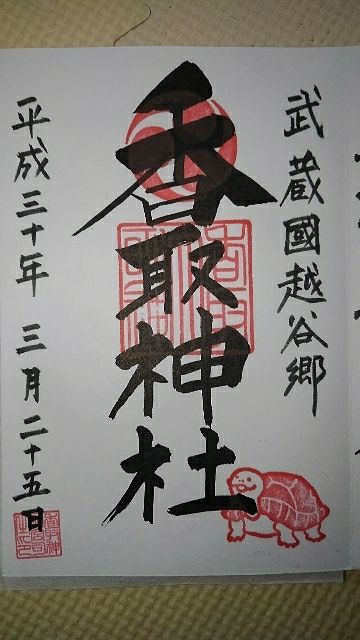 武蔵國越谷郷
香取神社
平成三十年 三月二十五日